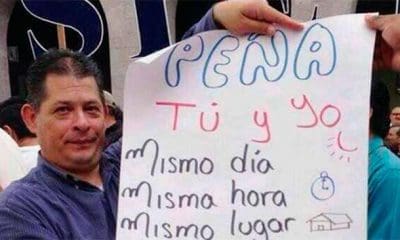 PEÑA
TÚ y YO
Mismo día
Misma hora
Mismo lugar